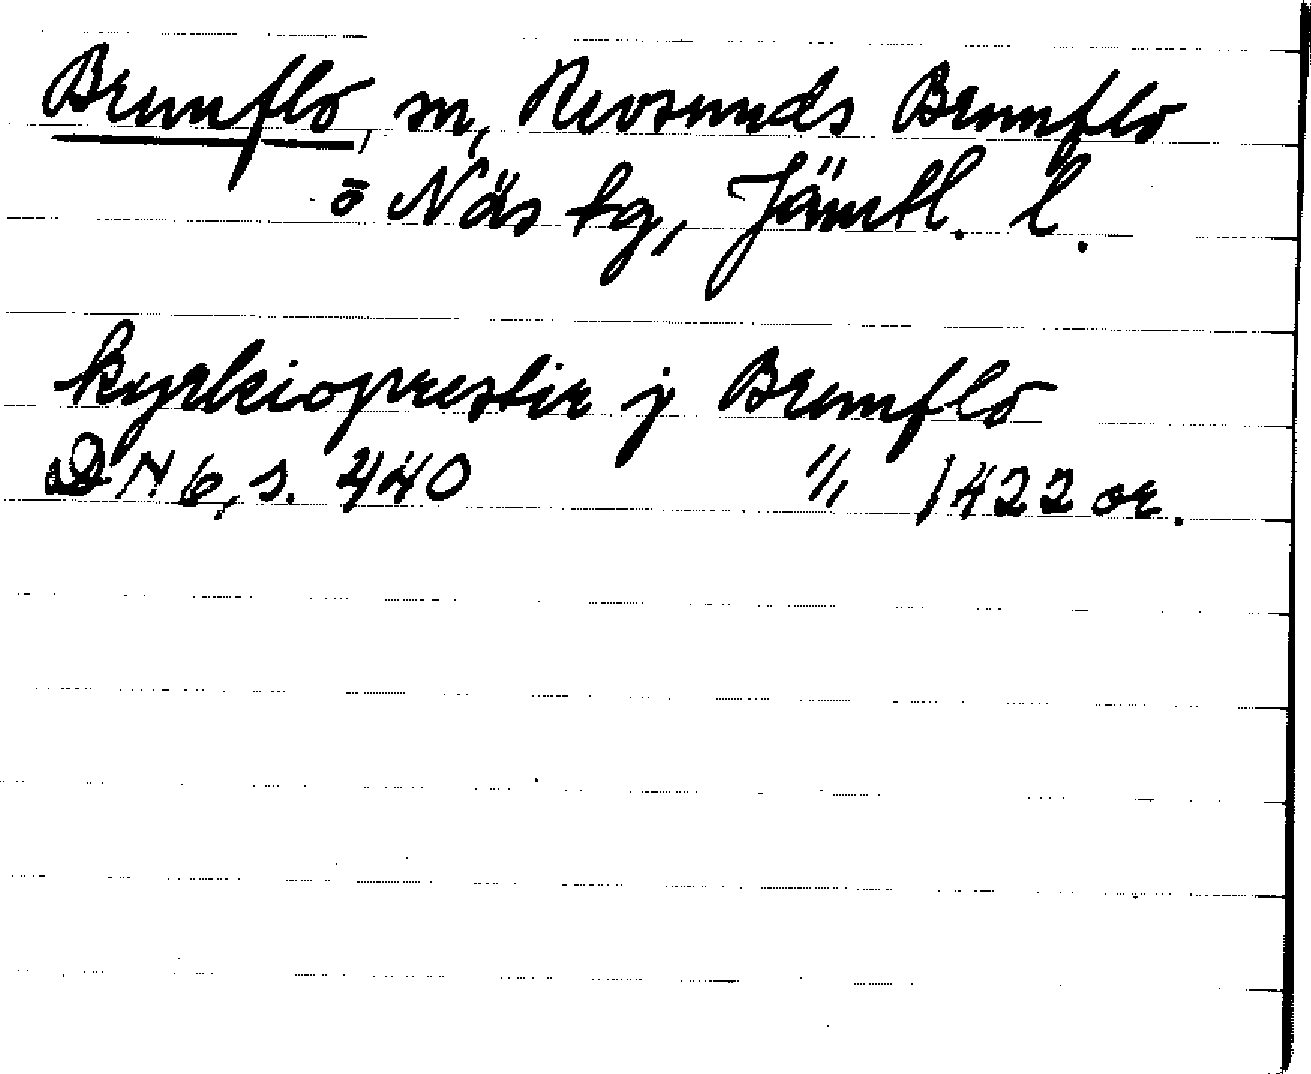 Brunflo, sn, Revsunds Brunflo
o Näs tg, Jämtl. l.
kyrkioprestir j Brunflo
DN 6, s. 440 " 1422 or.